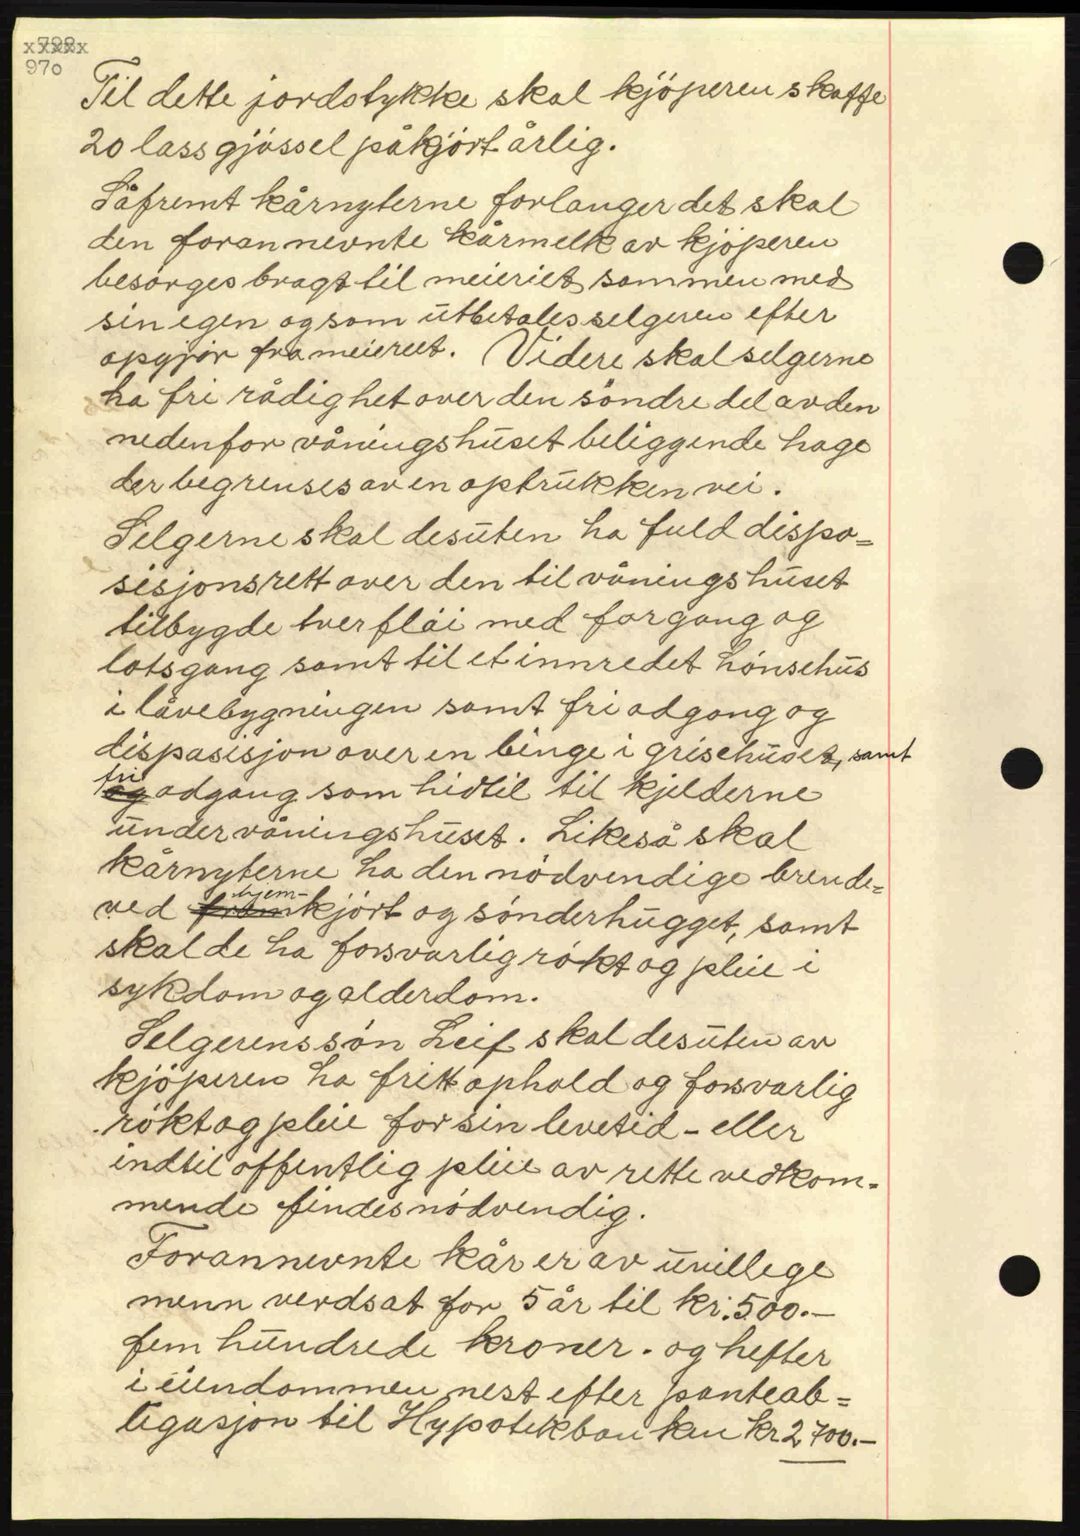 970
Til dette jordstykke skal kjöperen skaffe
20 lass gjössel påkjört årlig.
Såfremt kårnyterne forlanger det skal
den forannevnte kårmelk av kjöperen
besörges bragt til meieriet sammen med
sin egen og som utbetales selgeren efter
opgjör fra meieriet. Videre skal selgerne
ha fri rådighet over den söndre del av den
nedenfor våningshuset beliggende hage
der begrenses av en optrukken vei.
Selgerne skal desuten ha fuld dispo=
sisjonsrett over den til våningshuset
tilbygde tverflöi med forgang og
lotsgang samt til et innredet hönsehus
i låvebygningen samt fri adgang og
disposisjon over en binge i grisehuset, samt
fri adgang som hidtil til kjelderne
under våningshuset. Likeså skal
kårnyterne ha den nödvendige brende=
ved hjem-kjört og sönderhugget, samt
skal de ha forsvarlig rökt og pleie i
sykdom og alderdom.
Selgerens sön Leif skal desuten av
kjöperen ha fritt ophold og forsvarlig
rökt og pleie for sin levetid - eller
indtil offentlig pleie av rette vedkom-
mende findes nödvendig.
Forannevnte kår er av uvillige
menn verdsat for 5 år til kr. 500.-
fem hundrede kroner. og hefter
i eiendommen nest efter panteob=
ligasjon til Hypotekbanken kr 2700.-